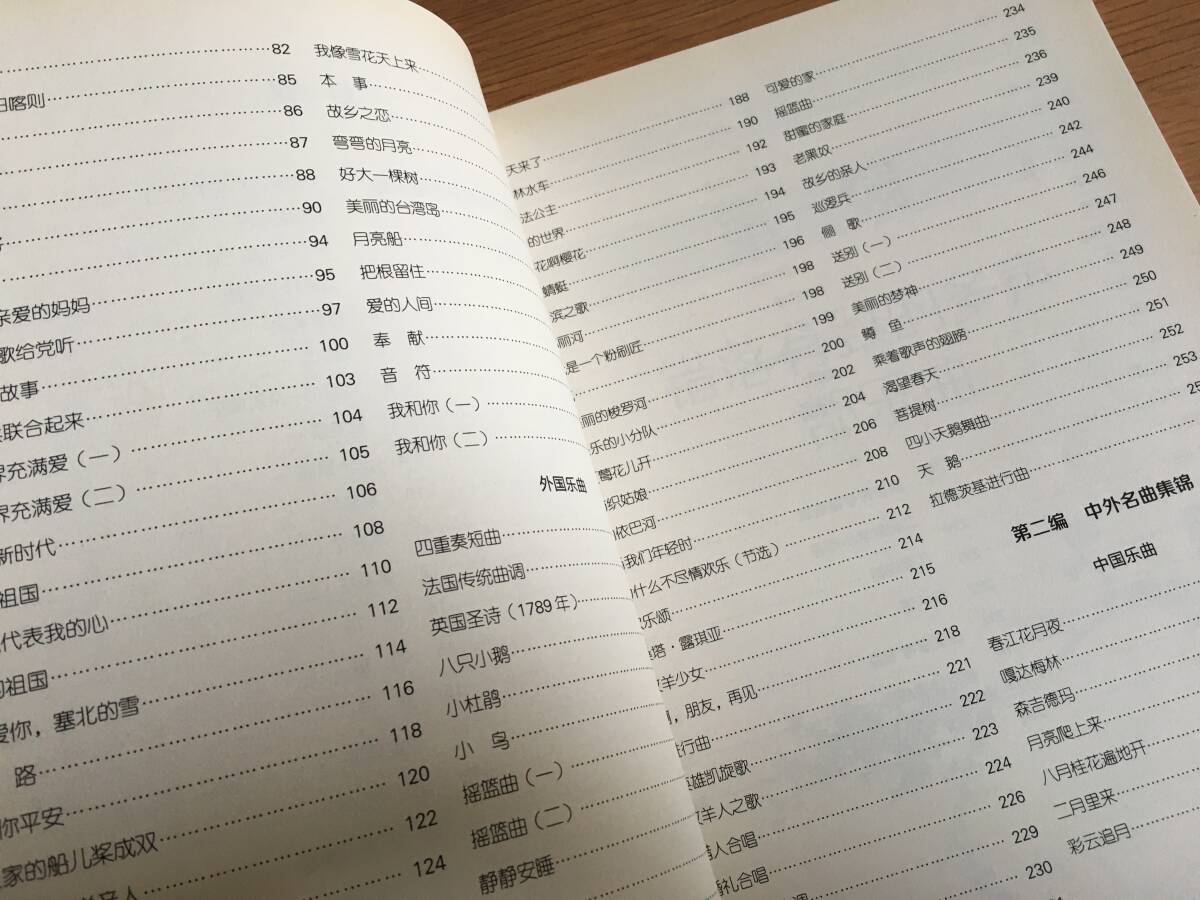 82
日喀则 85
86
87
88
90
94
亲爱的妈妈 95
歌给党听 97
故事 100
联合起来 103
界充满爱（一） 104
界充满爱（二） 105
新时代 106
祖国 108
代表我的心 110
的祖国 112
爱你，塞北的雪 114
路 116
你平安 118
家的船儿桨成双 120
亲人 122
124
我像雪花天上来
本 事
故乡之恋
弯弯的月亮
好大一棵树
美丽的台湾岛
月亮船
把根留住
爱的人间
奉 献
音 符
我和你（一）
我和你（二）
外国乐曲
四重奏短曲
法国传统曲调
英国圣诗（1789年）
八只小鹅
小杜鹃
小 鸟
摇篮曲（一）
摇篮曲（二）
静静安睡
天来了 188
林水车 190
法公主 192
的世界 193
花啊樱花 194
蜻蜓 195
滨之歌 196
丽河 198
是一个粉刷匠 198
199
丽的梭罗河 200
乐的小分队 202
花儿开 204
织姑娘 206
依巴河 208
我们年轻时 210
什么不尽情欢乐（节选） 212
乐颂 214
塔·露琪亚 215
羊少女 216
朋友，再见 218
行曲 221
雄凯旋歌 222
羊人之歌 223
人合唱 224
礼合唱 226
229
230
可爱的家 234
摇篮曲 235
甜蜜的家庭 236
老黑奴 239
故乡的亲人 240
巡逻兵 242
俪 歌 244
送别（一） 246
送别（二） 247
美丽的梦神 248
鳟 鱼 249
乘着歌声的翅膀 250
渴望春天 251
菩提树 252
四小天鹅舞曲 253
天 鹅
拉德茨基进行曲
第二编 中外名曲集锦
中国乐曲
春江花月夜
嘎达梅林
森吉德玛
月亮爬上来
八月桂花遍地开
二月里来
彩云追月